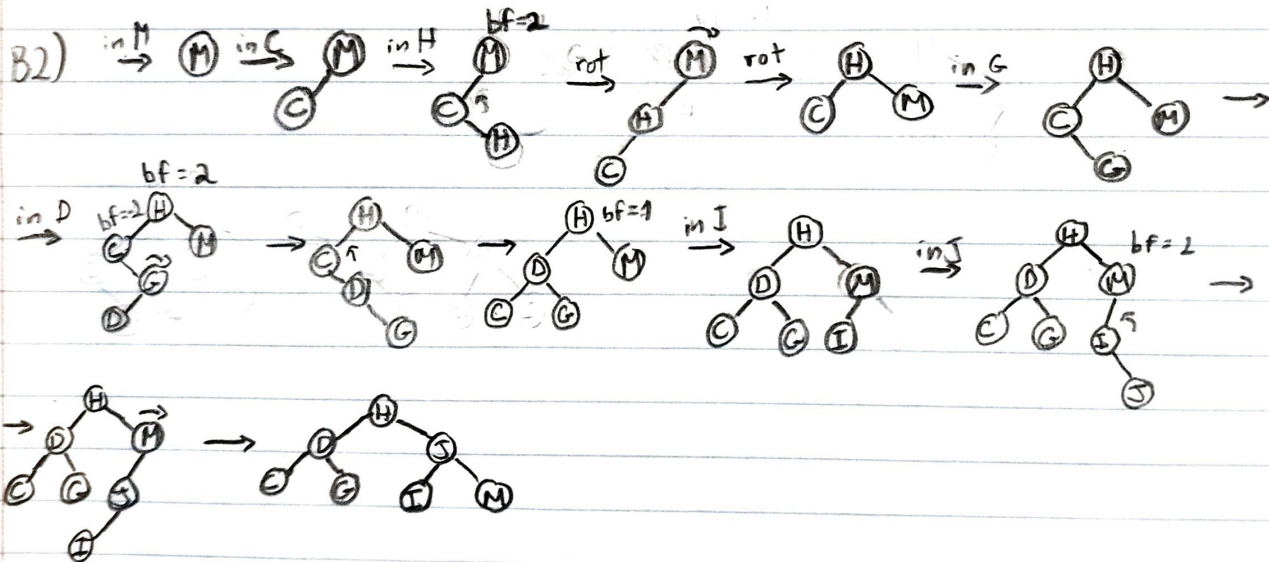 B2) in M M in C M C in H bf=2 M C H rot M H C rot H C M in G H C M G
in D bf=2 bf=-2 H C M G D H C M D G H bf=1 D M C G in I H D M C G I in J H bf=2 D M C G I J
H D M C G J I H D J C G I M